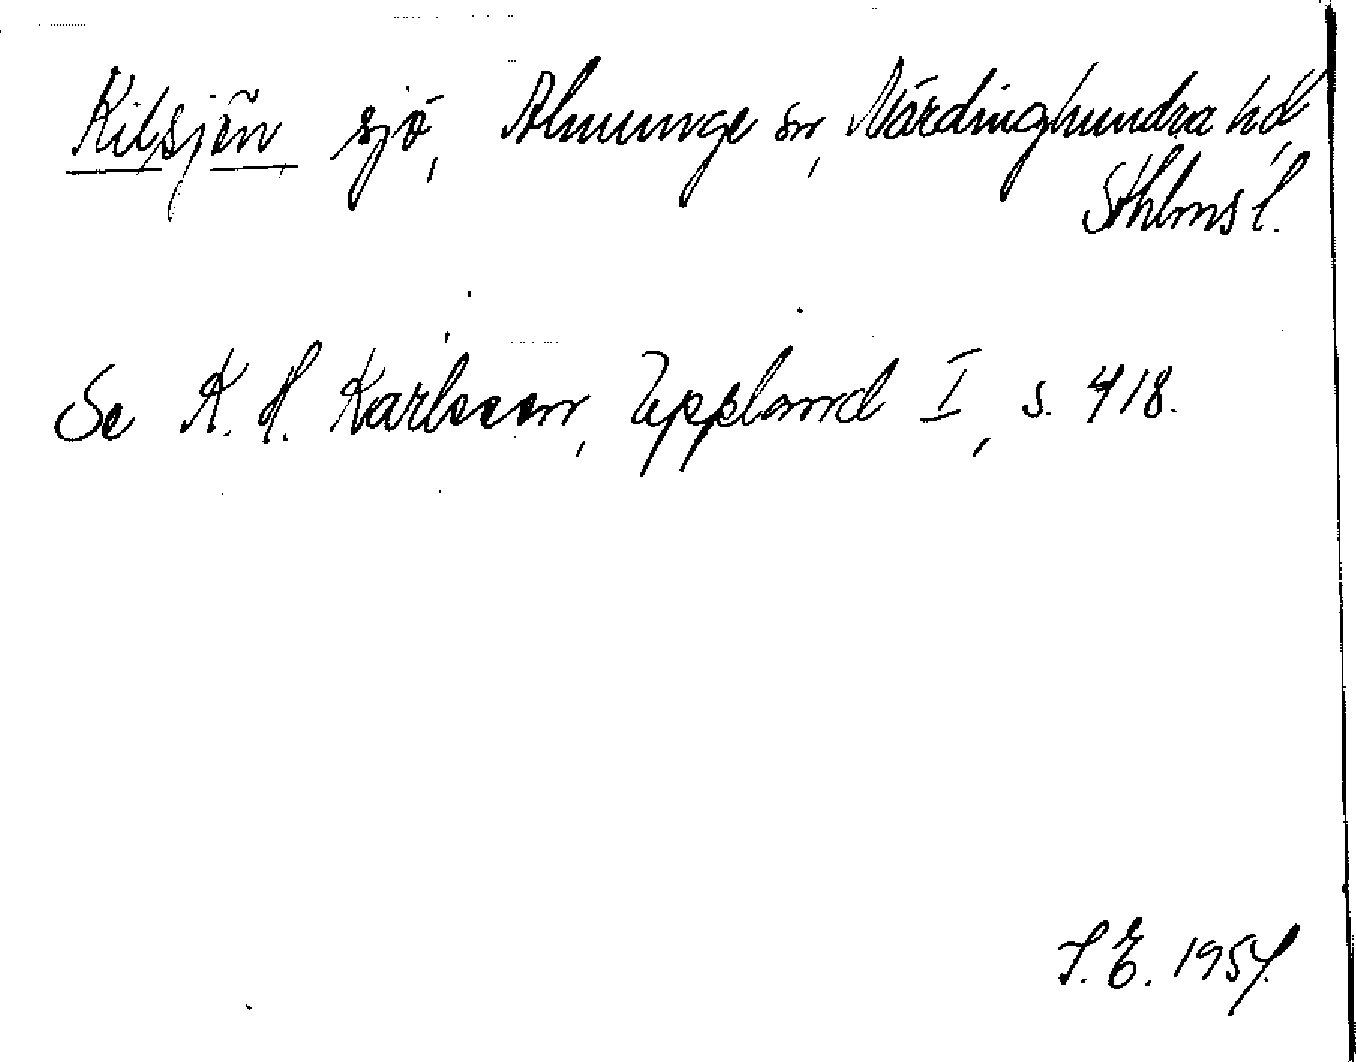 Kilsjön sjö, Almunge sn, Närdinghundra hd,
Sthlms l.
Se K. H. Karlsson, Uppland I, s. 418.
S. E. 1954.